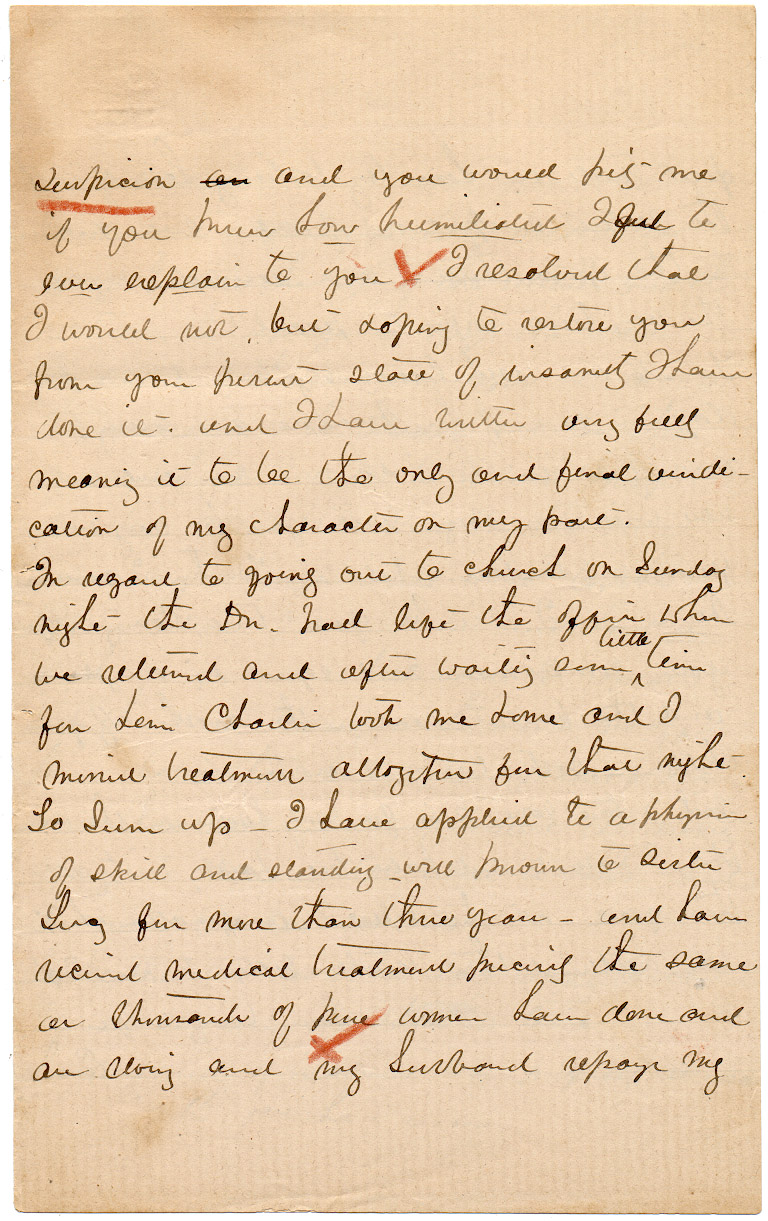 suspicion an and you would pity me
if you knew how humiliated I feel to
even explain to you I resolved that
I would not, but hoping to restore you
from your present state of insanity I have
done it. and I have written very fully
meaning it to be the only and final vindi-
cation of my character on my part.
In regard to going out to church on Sunday
night the Dr. had left the office when
we returned and after waiting some little time
for him Charlie took me home and I
missed treatment altogether for that night.
To sum up - I have applied to a physician
of skill and standing well known to sister
Lucy for more than three years - and have
received medical treatment precisely the same
as thousands of pure women have done and
are doing and my husband repays my